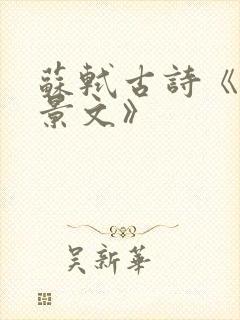 蘇軾古詩《
景文》
吴新華